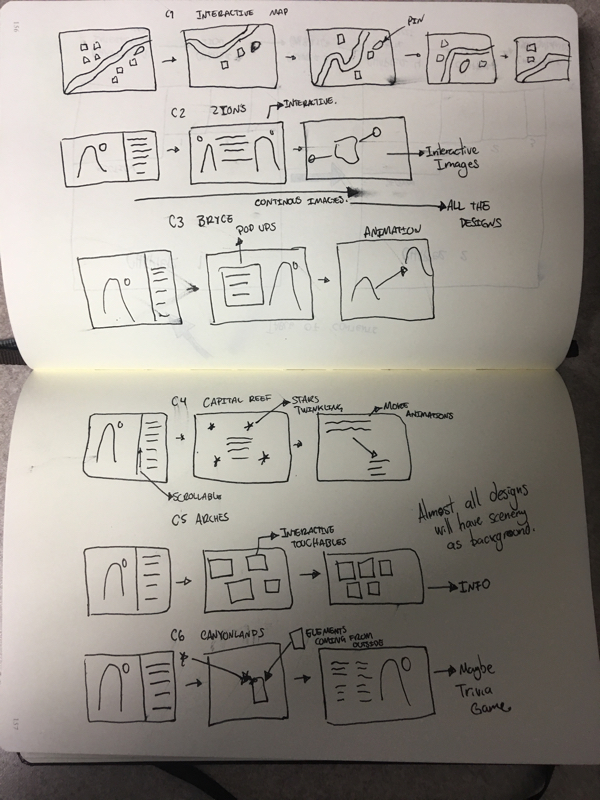 C1 INTERACTIVE MAP
PIN
C2 ZIONS
INTERACTIVE.
Interactive
Images
CONTINOUS IMAGES.
ALL THE
DESIGNS
C3 BRYCE
POP UPS
ANIMATION
C4 CAPITAL REEF
STARS
TWINKLING
MORE
ANIMATIONS
SCROLLABLE
Almost all designs
will have scenery
as background.
C5 ARCHES
INTERACTIVE
TOUCHABLES
INFO
C6 CANYONLANDS
ELEMENTS
COMING FROM
OUTSIDE
Maybe
Trivia
Game